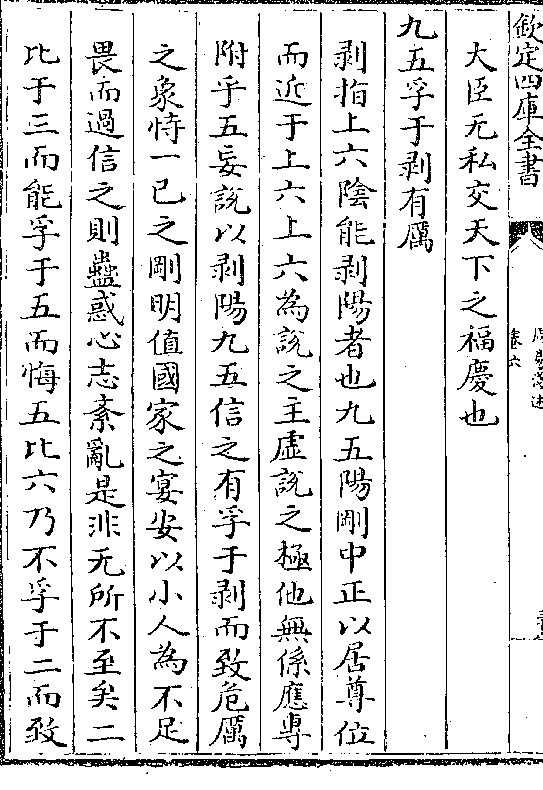 欽定四庫全書
卷六
大臣无私交天下之福慶也
九五孚于剥有厲
剥指上六陰能剥陽者也九五陽剛中正以居尊位
而近于上六上六為說之主虛說之極他無係應專
附乎五妄說以剥陽九五信之有孚于剥而致危厲
之象恃一已之剛明值國家之宴安以小人為不足
畏而過信之則蠱惑心志紊亂是非无所不至矣二
比于三而能孚于五而悔五比六乃不孚于二而致